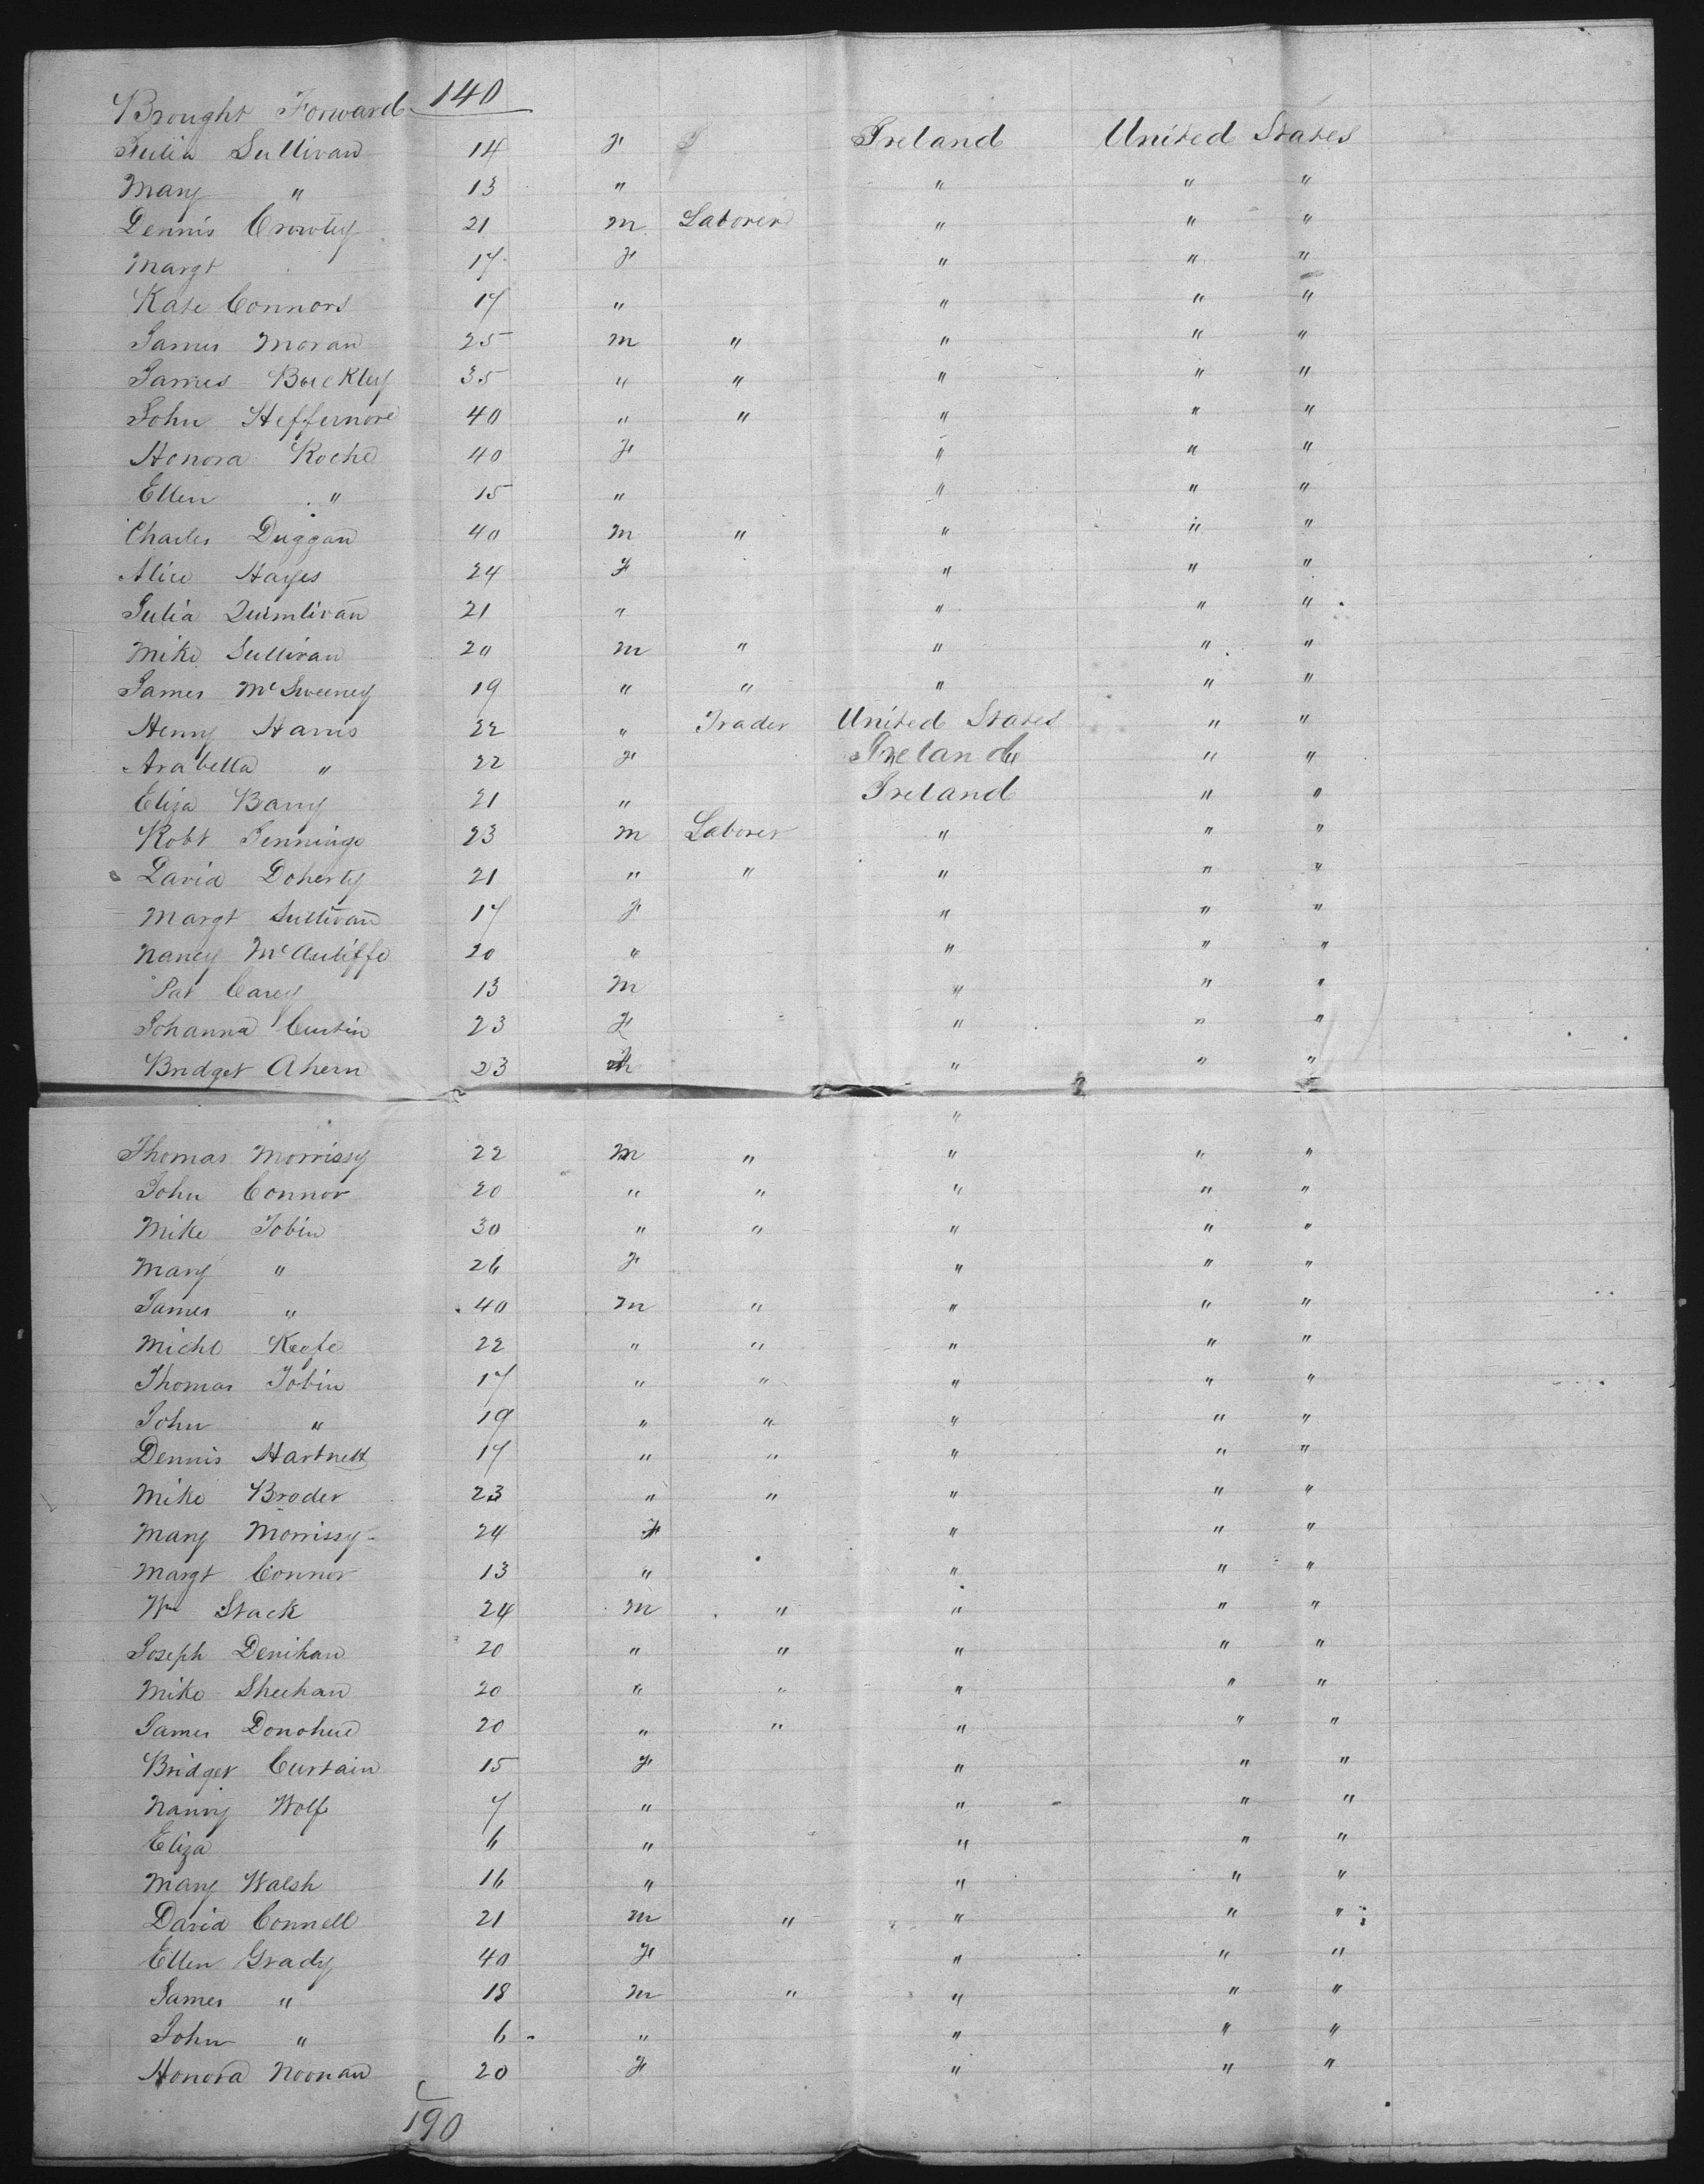 Brought Forward 140
Julia Sullivan 14 F Ireland United States
Mary " 13 " " " "
Dennis Crowley 21 m Laborer " " "
Margt 17 F " " "
Kate Connors 17 " " " "
James Moran 25 m " " " "
James Buckley 35 " " " " "
John Heffernore 40 " " " " "
Honora Roche 40 F " " "
Ellen " 15 " " " "
Charles Duggan 40 m " " " "
Alice Hayes 24 F " " "
Julia Quimlivan 21 " " " "
Mike Sullivan 20 m " " " "
James McSweeney 19 " " " " "
Henry Harris 22 " Trader United States " "
Arabella " 22 F Ireland " "
Eliza Barry 21 " Ireland " "
Robt Jennings 23 m Laborer " " "
David Doherty 21 " " " " "
Margt Sullivan 17 F " " "
Nancy McAuliffe 20 " " " "
Pat Carey 13 m " " "
Johanna Curtin 23 F " " "
Bridget Ahern 23 " " "
"
Thomas Morrissy 22 m " " " "
John Connor 20 " " " " "
Mike Tobin 30 " " " " "
Mary " 26 F " " "
James " 40 m " " " "
Michl Keefe 22 " " " " "
Thomas Tobin 17 " " " " "
John " 19 " " " " "
Dennis Hartnett 17 " " " " "
Mike Broder 23 " " " " "
Mary Morrissy 24 F " " "
Margt Connor 13 " " " "
Wm Stack 24 m " " " "
Joseph Denihan 20 " " " " "
Mike Sheehan 20 " " " " "
James Donohue 20 " " " " "
Bridget Curtain 15 F " " "
Nanny Wolfe 7 " " " "
Eliza 6 " " " "
Mary Walsh 16 " " " "
David Connell 21 m " " " "
Ellen Grady 40 F " " "
James " 18 m " " " "
John " 6 " " " "
Honora Noonan 20 F " " "
190